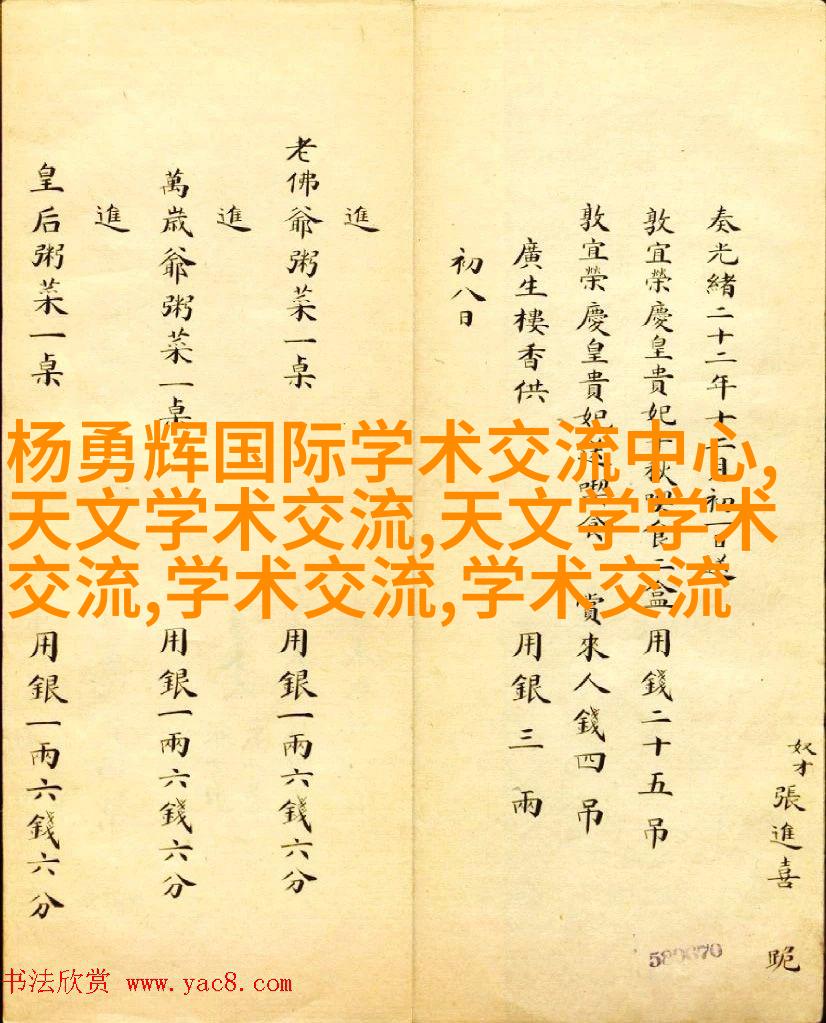 奴才張進喜 跪
奏光緒二十二年十二月初一日送
敦宜榮慶皇貴妃 喫食二盒 用錢二十五吊
敦宜榮慶皇貴妃送喫食 賞來人錢四吊
廣生樓香供 用銀三兩
初八日
進
老佛爺粥菜一桌 用銀一兩六錢六分
進
萬歲爺粥菜一桌 用銀一兩六錢六分
進
皇后粥菜一桌 用銀一兩六錢六分
杨勇辉国际学术交流中心,
天文学术交流,天文学学术
交流,学术交流,学术交流
书法欣赏 www.yac8.com